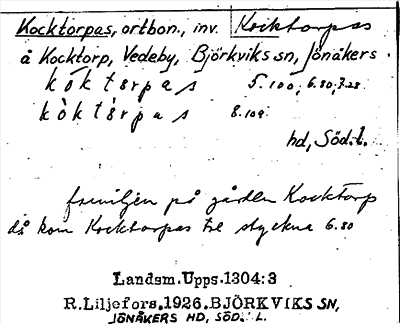 Kocktorpas, ortbon., inv. Kocktorpas
å Kocktorp, Vedeby, Björkviks sn, Jönåkers
kóktɘrpas 5.100, 6.80, 7.28
kòktɘ̀rpas 8.109
hd, Söd. l.
familjen på gården Kocktorp
då kom Kocktorpas te styckna 6.80
Landsm.Upps.1304:3
R.Liljefors.1926.BJÖRKVIKS SN,
JÖNÅKERS HD, SÖD. L.